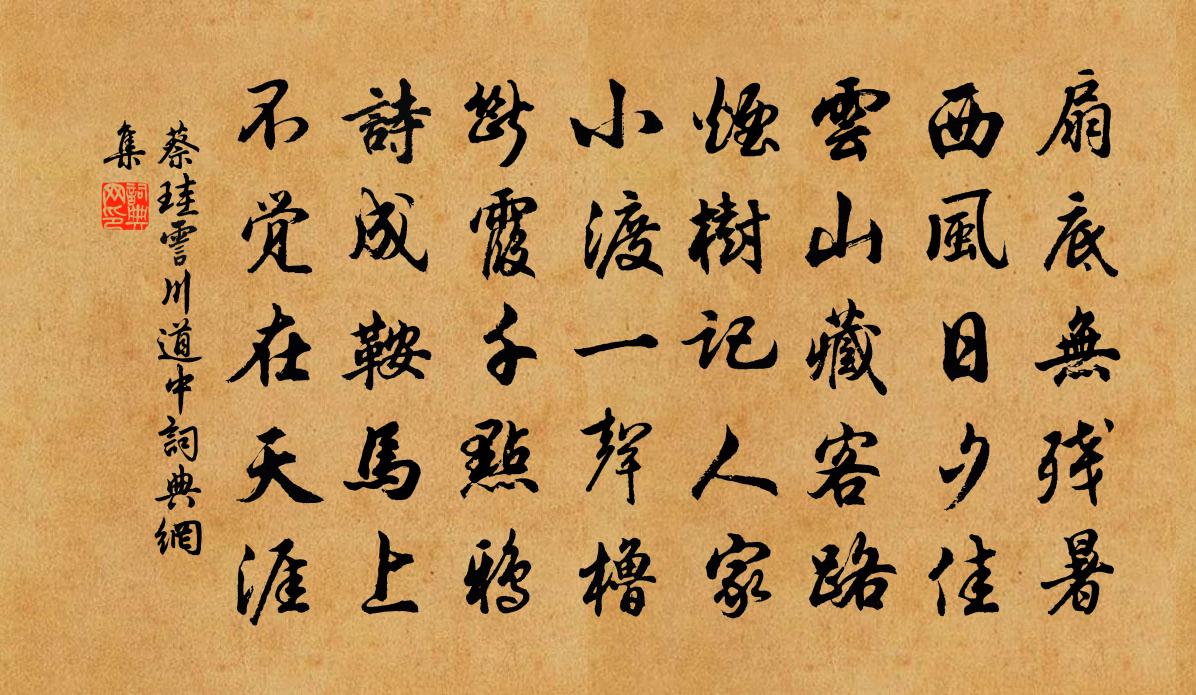 扇底無残暑
西風日夕佳
雲山藏客路
煙樹記人家
小渡一聲櫓
斷霞千點鴉
詩成鞍馬上
不覚在天涯
蔡珪雪川道中詞典網
集
詞典网印